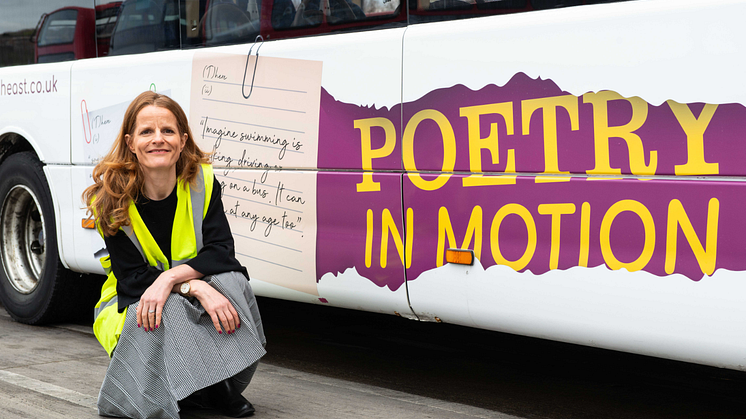 heast.co.uk
(T)hem
(w)
"Imagine swimming is
driving
on a bus. It can
at any age too"
POETRY
IN MOTION